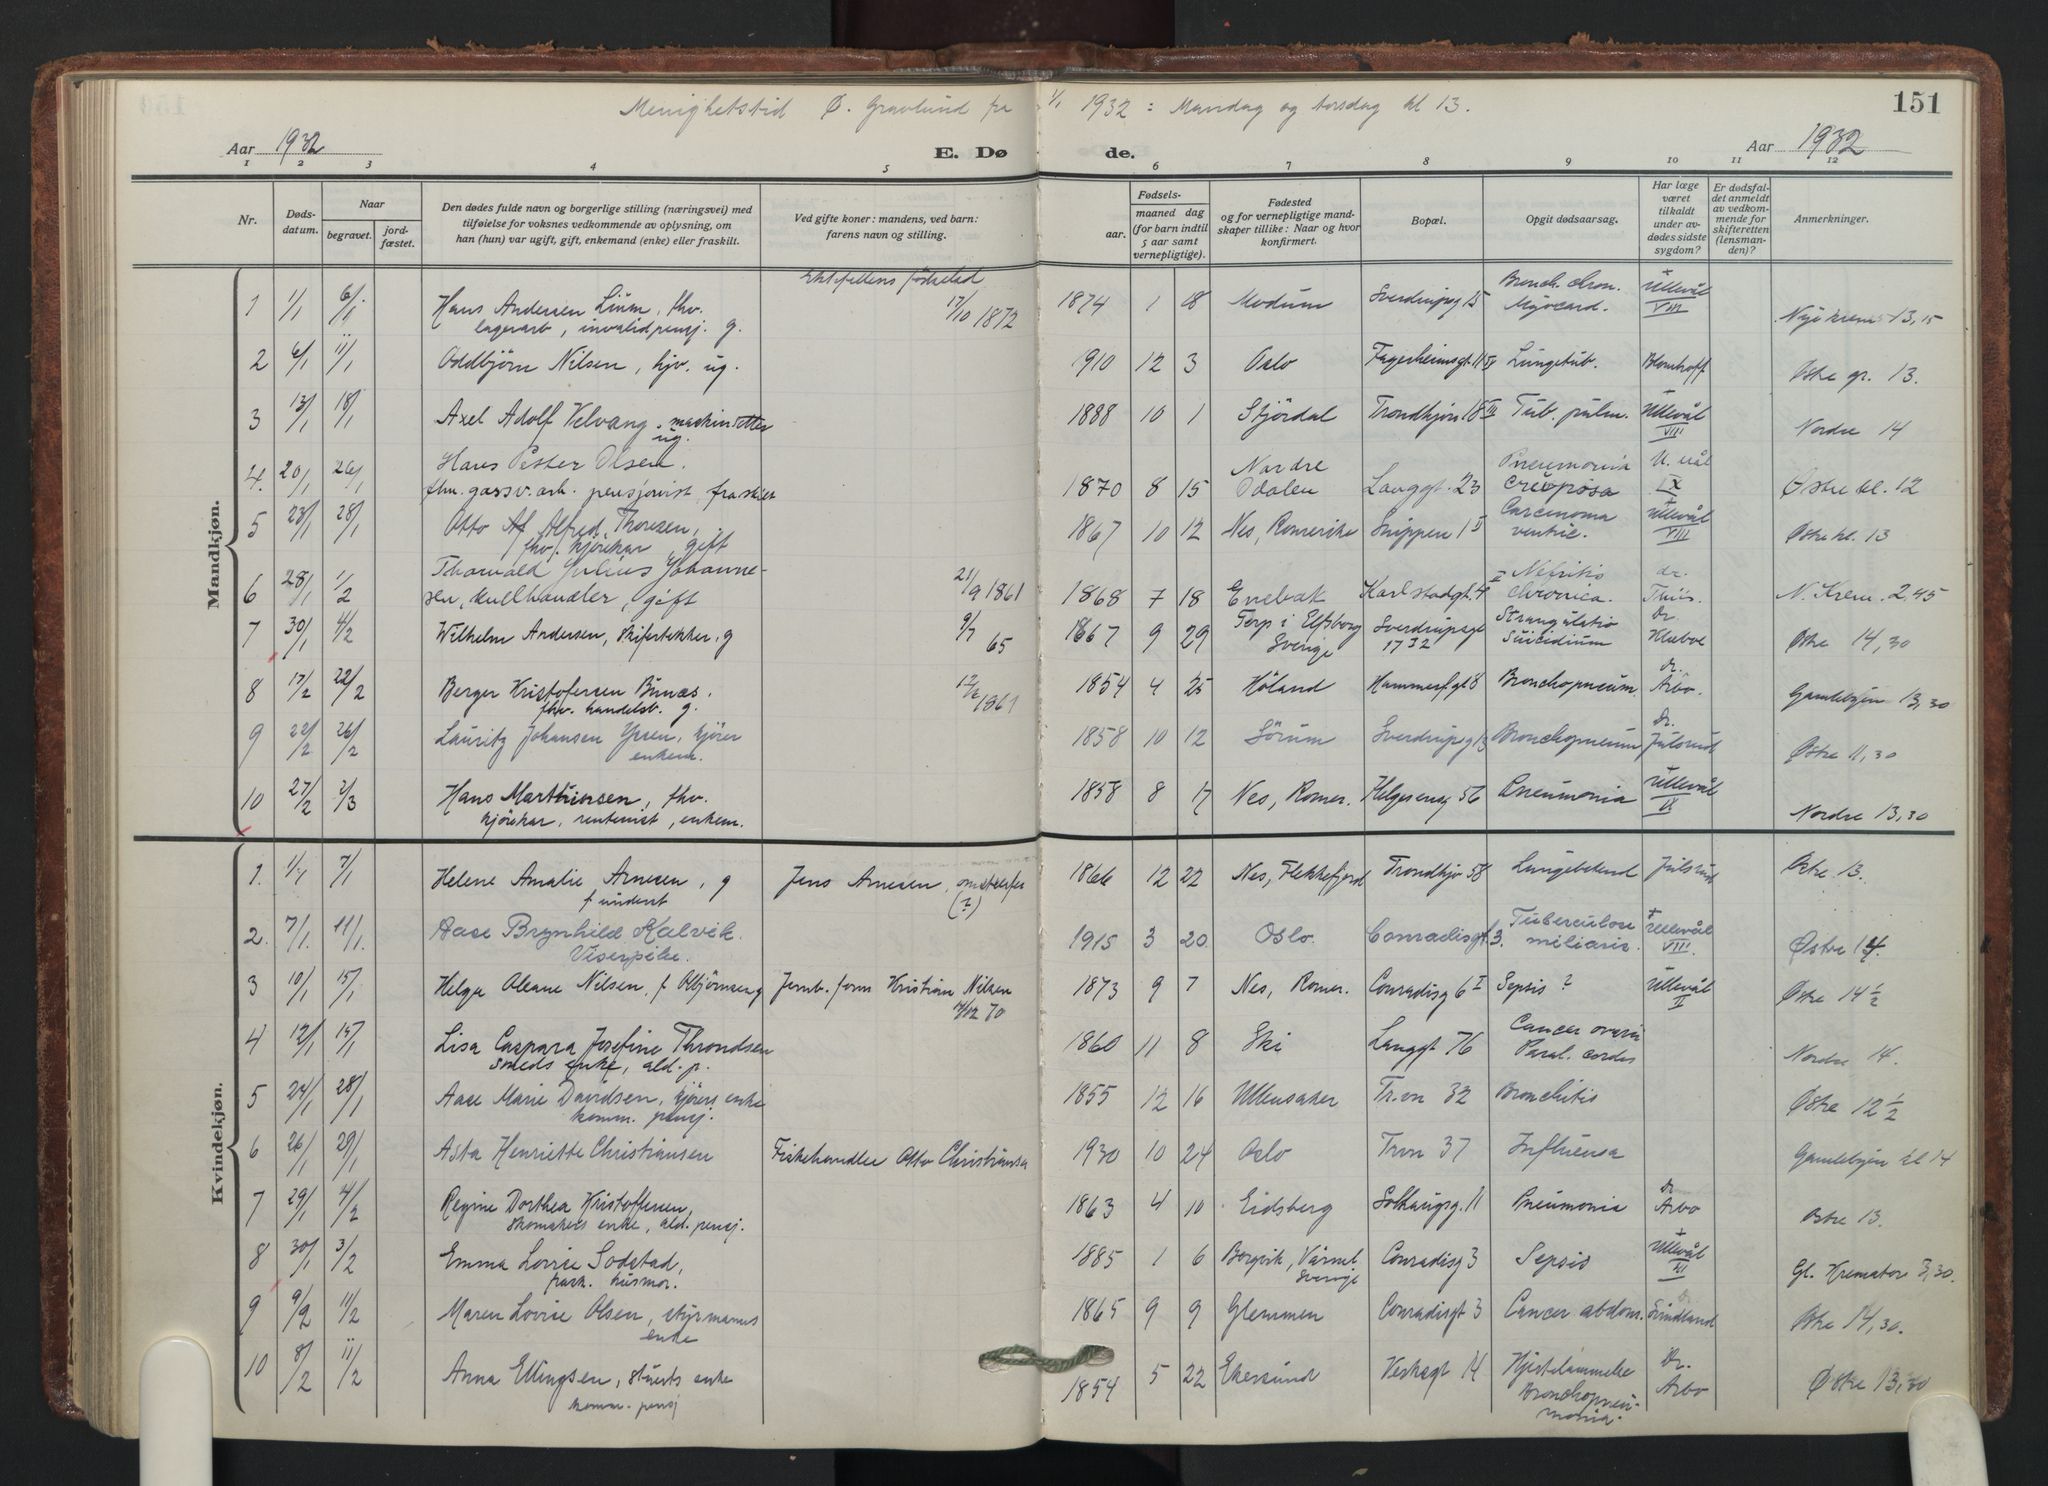 Menighetstid Ø. Gravlund fra 1/1 1932: Mandag og torsdag kl 13.
151
Aar 1932
E. Døde.
Aar 1932
1 2 3 4 5 6 7 8 9 10 11 12
Nr.
Døds-
datum.
Naar
begravet.
jord-
fæstet.
Den dødes fulde navn og borgerlige stilling (næringsvei) med
tilføielse for voksnes vedkommende av oplysning, om
han (hun) var ugift, gift, enkemand (enke) eller fraskilt.
Ved gifte koner: mandens, ved barn:
farens navn og stilling.
Fødsels-
aar.
maaned dag
(for barn indtil
5 aar samt
vernepligtige).
Fødested
og for vernepligtige mand-
skaper tillike: Naar og hvor
konfirmert.
Bopæl.
Opgit dødsaarsag.
Har læge
været
tilkaldt
under av-
dødes sidste
sygdom?
Er dødsfal-
det anmeldt
av vedkom-
mende for
skifteretten
(lensman-
den)?
Anmerkninger.
Mandkjøn.
Ektefellens fødselsd
1 1/1 6/1 Hans Andersen Lium, fhv. 17/10 1872 1874 1 18 Modum Sverdrupsg 15 Bronch. chron. Ullevål
lagerarb, invalidpensj. g. Myocard. VIII Nye krem 13,15
2 6/1 11/1 Oddbjørn Nilsen, hjv. ug. 1910 12 3 Oslo Fagerheimsgt. 11 IV Lungetub. Blomhoff Østre gr. 13.
3 13/1 18/1 Axel Adolf Velvang, maskinsetter 1888 10 1 Stjørdal Trondhjsv 18 III Tub. pulm. Ullevål
ug. VIII Nordre 14
4. 20/1 26/1 Hans Peter Olsen. Nordre Pneumonia U.vål
fhv. gassv. arb. pensjonist fraskilt 1870 8 15 Odalen Langgt. 23 crupøsa IX Østre kl. 12
5 23/1 28/1 Otto Alfred Thoresen, 1867 10 12 Nes, Romerike Snippen 1 II Carcinoma Ullevål
fhv. kjørekar gift ventric. VIII Østre kl. 13
6 28/1 1/2 Thorvald Julius Johanne- 21/9 1861 1868 7 18 Enebak Karlstadgt. 4 II Nefritis dr.
sen, kullhandler, gift chronica. Thiis. N. Krem. 2,45
7 30/1 4/2 Wilhelm Andersen, skifertekker, g 9/7 65 1867 9 29 Terp i Elfsborg Sverdrupsgt Strangulatio Dr.
Sverige 17 32 Suicidium Klaboe Østre 14,30
8 17/2 22/2 Berger Kristofersen Bunæs. 12/2 1861 1854 4 25 Høland Hammerfgt 8 Bronchopneum. dr. Arbo.
fhv. handelsb. g. Gamlebyen 13,30
9 22/2 26/2 Lauritz Johansen Ysen, kjører 1858 10 12 Sørum Sverdrupsg 13 Bronchopneum Dr. Julsrud
enkem. Østre 11,30
10 27/2 2/3 Hans Marthinsen, fhv. 1858 8 17 Nes, Romer. Helgesensg 56 Pneumonia Ullevål
kjørekar, rentenist, enkem. IX Nordre 13,30
Kvindekjøn.
1. 1/1 7/1 Helene Amalie Arnesen, g Jens Arnesen, 1866 12 22 Nes, Flekkefjord Trondhjv 58 Lungebetend Julsrud Østre 13.
f underst (?)
2. 7/1 11/1. Aase Brynhild Kalvik. 1915 3 20 Oslo. Conradisgt 3. Tuberculose Ullevål
Viserpike. miliaris. VIII Østre 14.
3 10/1 15/1 Helga Oleane Nilsen, f Olbjørnsen g Jernb. form Kristian Nilsen 1873 9 7 Nes, Romer. Conradisg 6 I Sepsis ? Ullevål II Østre 14 1/2
14/12 70
4 12/1 15/1 Lisa Caspara Josefine Throndsen 1860 11 8 Ski Langgt 76 Cancer ovarii
smeds enke, ald.p. Paral. cordis Nordre 14.
5 24/1 28/1 Aase Marie Davidsen, kjørers enke 1855 12 16 Ullensaker Tr.vn 32 Bronchitis
komm. pensj. Østre 12 1/2
6 26/1 29/1 Asta Henriette Christiansen Fiskehandler Otto Christiansen 1930 10 24 Oslo Trvn 37 Influensa Gamlebyen kl 14
7 29/1 4/2 Regine Dorthea Kristoffersen, 1863 4 10 Eidsberg Solhaugsg. 11 Pneumonia Dr Arbo
skomakers enke, ald. pensj. Østre 13.
8 30/1 3/2 Emma Lovise Sodstad, 1885 1 6 Borgvik, Värmel. Conradisg 3 Sepsis Ullevål
husmor. Sverige XI Gl. Kremator 3,30.
9 9/2 11/2 Maren Lovise Olsen, styrmanns 1865 9 9 Glemmen Conradisgt 3 Cancer abdom. Svindland Østre 14,30.
enke
10 8/2 11/2 Anna Ellingsen, stuerts enke 1854 5 22 Ekersund Verksgt 14 Hjertelammelse Dr. Arbo Østre 13,30
komm. pensj Bronchopneu-
monia.